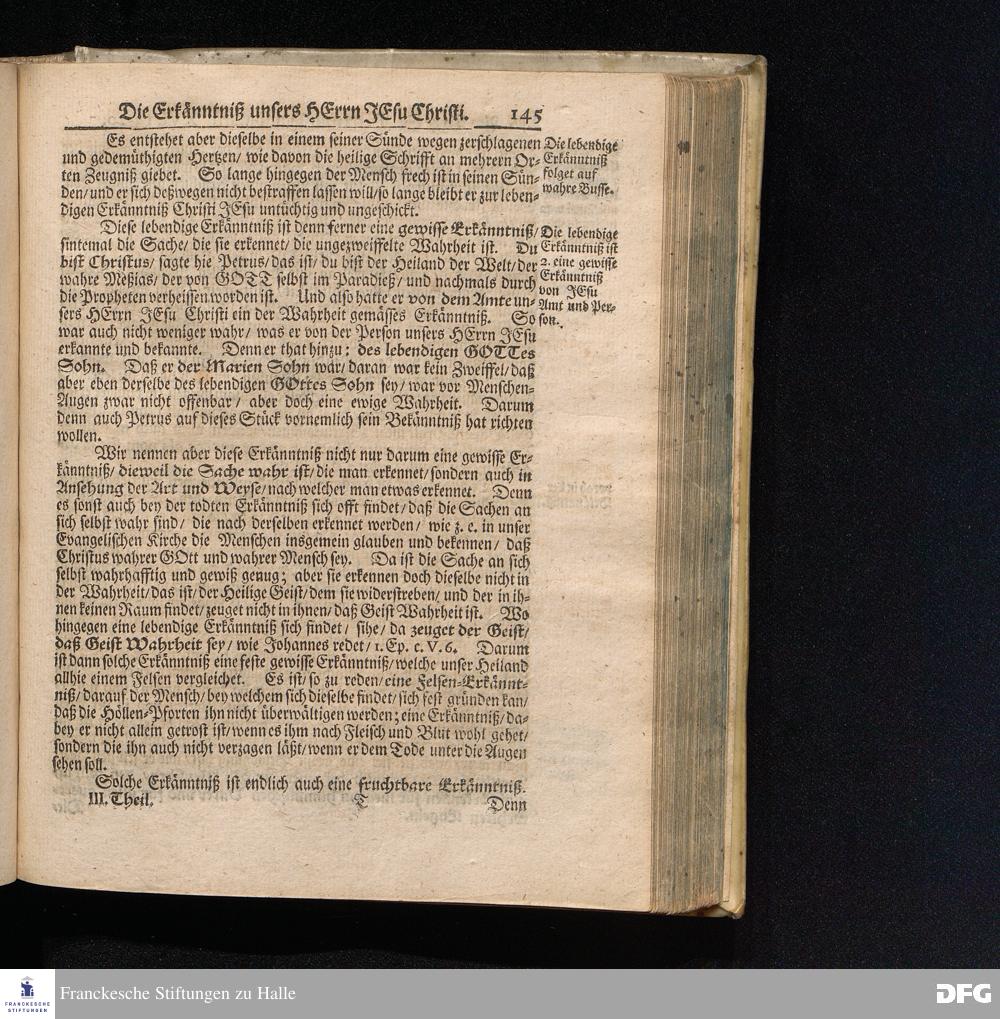 Die Erkänntniß unsers HErrn JEsu Christi. 145
Es entstehet aber dieselbe in einem seiner Sünde wegen zerschlagenen
und gedemüthigten Hertzen/ wie davon die heilige Schrifft an mehrern Or-
ten Zeugniß giebet. So lange hingegen der Mensch frech ist in seinen Sün-
den/ und er sich deßwegen nicht bestraffen lassen will/ so lange bleibt er zur leben-
digen Erkänntniß Christi JEsu untüchtig und ungeschickt.
Die lebendige
Erkänntniß
folget auf
wahre Busse.
Diese lebendige Erkänntniß ist denn ferner eine gewisse Erkänntniß/
sintemal die Sache/ die sie erkennet/ die ungezweiffelte Wahrheit ist. Du
bist Christus/ sagte hie Petrus/ das ist/ du bist der Heiland der Welt/ der
wahre Meßias/ der von GOTT selbst im Paradieß/ und nachmals durch
die Propheten verheissen worden ist. Und also hatte er von dem Amte un-
sers HErrn JEsu Christi ein der Wahrheit gemässes Erkänntniß. So
war auch nicht weniger wahr/ was er von der Person unsers HErrn JEsu
erkannte und bekannte. Denn er that hinzu: des lebendigen GOTTes
Sohn. Daß er der Marien Sohn war/ daran war kein Zweiffel/ daß
aber eben derselbe des lebendigen GOttes Sohn sey/ war vor Menschen-
Augen zwar nicht offenbar/ aber doch eine ewige Wahrheit. Darum
denn auch Petrus auf dieses Stück vornemlich sein Bekänntniß hat richten
wollen.
Die lebendige
Erkänntniß ist
2. eine gewisse
Erkänntniß
von JEsu
Amt und Per-
son.
Wir nennen aber diese Erkänntniß nicht nur darum eine gewisse Er-
känntniß/ dieweil die Sache wahr ist/ die man erkennet/ sondern auch in
Ansehung der Art und Weyse/ nach welcher man etwas erkennet. Denn
es sonst auch bey der todten Erkänntniß sich offt findet/ daß die Sachen an
sich selbst wahr sind/ die nach derselben erkennet werden/ wie z. e. in unser
Evangelischen Kirche die Menschen insgemein glauben und bekennen/ daß
Christus wahrer GOtt und wahrer Mensch sey. Da ist die Sache an sich
selbst wahrhafftig und gewiß genug; aber sie erkennen doch dieselbe nicht in
der Wahrheit/ das ist/ der Heilige Geist/ dem sie widerstreben/ und der in ih-
nen keinen Raum findet/ zeuget nicht in ihnen/ daß Geist Wahrheit ist. Wo
hingegen eine lebendige Erkänntniß sich findet/ sihe/ da zeuget der Geist/
daß Geist Wahrheit sey/ wie Johannes redet/ 1. Ep. c. V. 6. Darum
ist dann solche Erkänntniß eine feste gewisse Erkänntniß/ welche unser Heiland
allhie einem Felsen vergleichet. Es ist/ so zu reden/ eine Felsen-Erkännt-
niß/ darauf der Mensch/ bey welchem sich dieselbe findet/ sich fest gründen kan/
daß die Höllen-Pforten ihn nicht überwältigen werden; eine Erkänntniß/ da-
bey er nicht allein getrost ist/ wenn es ihm nach Fleisch und Blut wohl gehet/
sondern die ihn auch nicht verzagen läßt/ wenn er dem Tode unter die Augen
sehen soll.
Solche Erkänntniß ist endlich auch eine fruchtbare Erkänntniß.
III. Theil. T Denn
FRANCKESCHE
STIFTUNGEN
Franckesche Stiftungen zu Halle
DFG